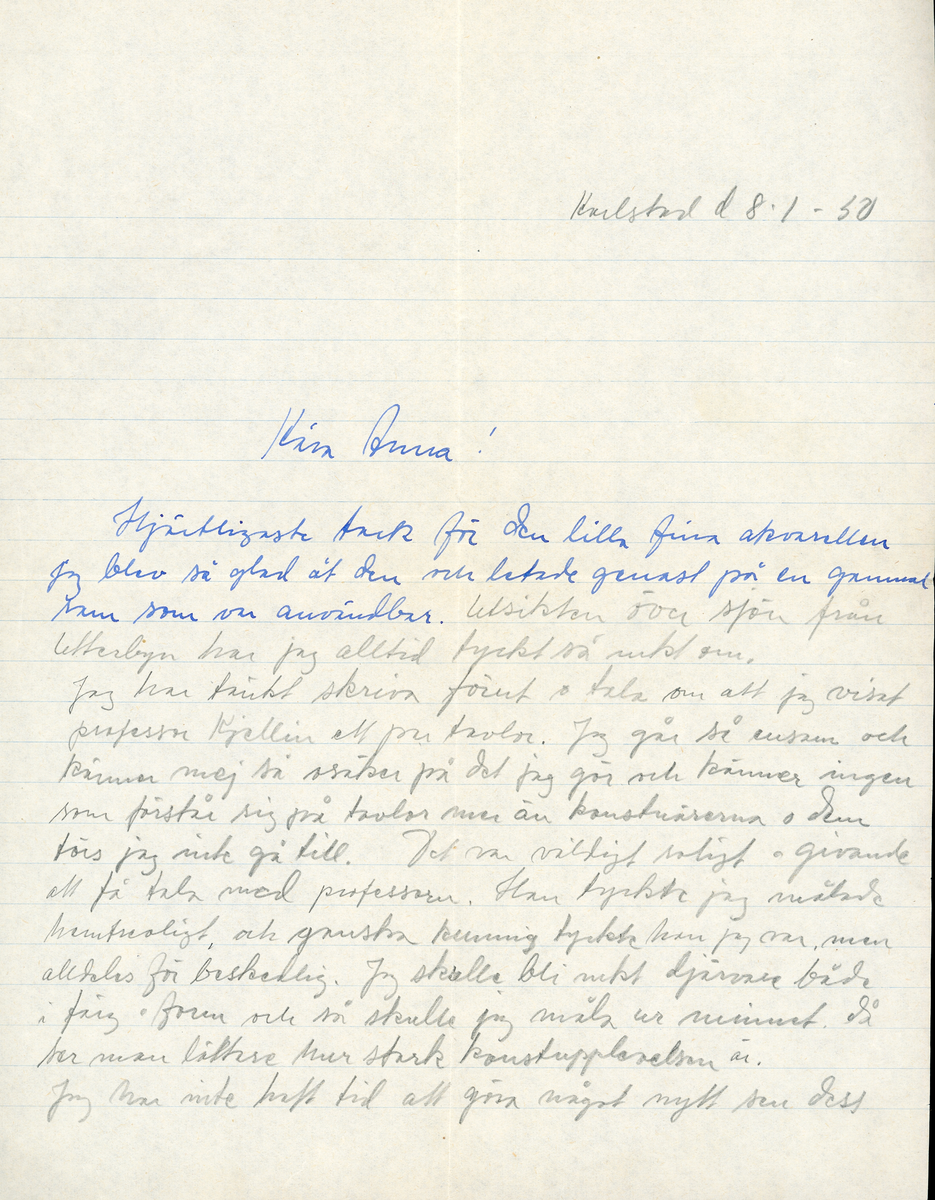 Karlstad d 8.1 - 50
Kära Anna!
Hjärtligaste tack för den lilla fina akvarellen
jag blev så glad åt den och letade genast på en gammal
ram som var användbar. Utsikten över sjön från
Utterbyn har jag alltid tyckt så mkt om.
Jag har tänkt skriva förut o tala om att jag visat
professor Kjellin ett par tavlor. Jag går så ensam och
känner mej så osäker på det jag gör och känner ingen
som förstår sig på tavlor mer än konstnärerna o dem
törs jag inte gå till. Det var väldigt roligt o givande
att få tala med professorn. Han tyckte jag målade
hemtrevligt, och ganska kunnig tyckte han jag var, men
alldeles för beskedlig. Jag skulle bli mkt djärvare både
i färg o form och så skulle jag måla ur minnet. Då
ser man lättare hur stark konstupplevelsen är.
Jag har inte haft tid att göra något nytt sen dess